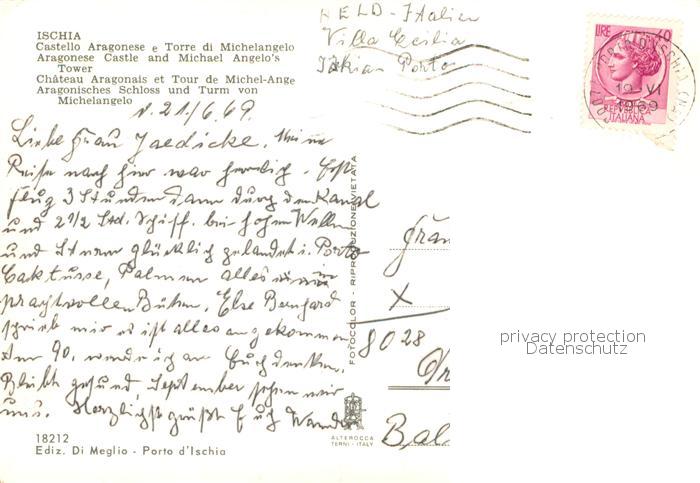 ISCHIA
Castello Aragonese e Torre di Michelangelo
Aragonese Castle and Michael Angelo's
Tower
Château Aragonais et Tour de Michel-Ange
Aragonisches Schloss und Turm von
Michelangelo
HELD - Italien
Villa Cecilia
Porto
LIRE 40
19 VI
1969
REPUBBLICA
ITALIANA
v. 21/6.69.
Liebe Frau Jaedicke. Meine
Reise nach hier war herrlich. Erst
Flug 3 Stunden dann durch den Kanal
und 2 1/2 Std. Schiff. bei hohen Wellen
und Sturm glücklich gelandet i. Porto
Caktusse, Palmen alles in
prachtvollen Blühn. Else Bernhard
schrieb mir es ist alles angekommen
90. werde ich an Euch denken.
Bleibt gesund, September sehen wir
uns. Herzlichst grüßt Euch
FOTOCOLOR - RIPRODUZIONE VIETATA
X
8028
privacy protection
Datenschutz
ALTEROCCA
TERNI - ITALY
18212
Ediz. Di Meglio - Porto d'Ischia